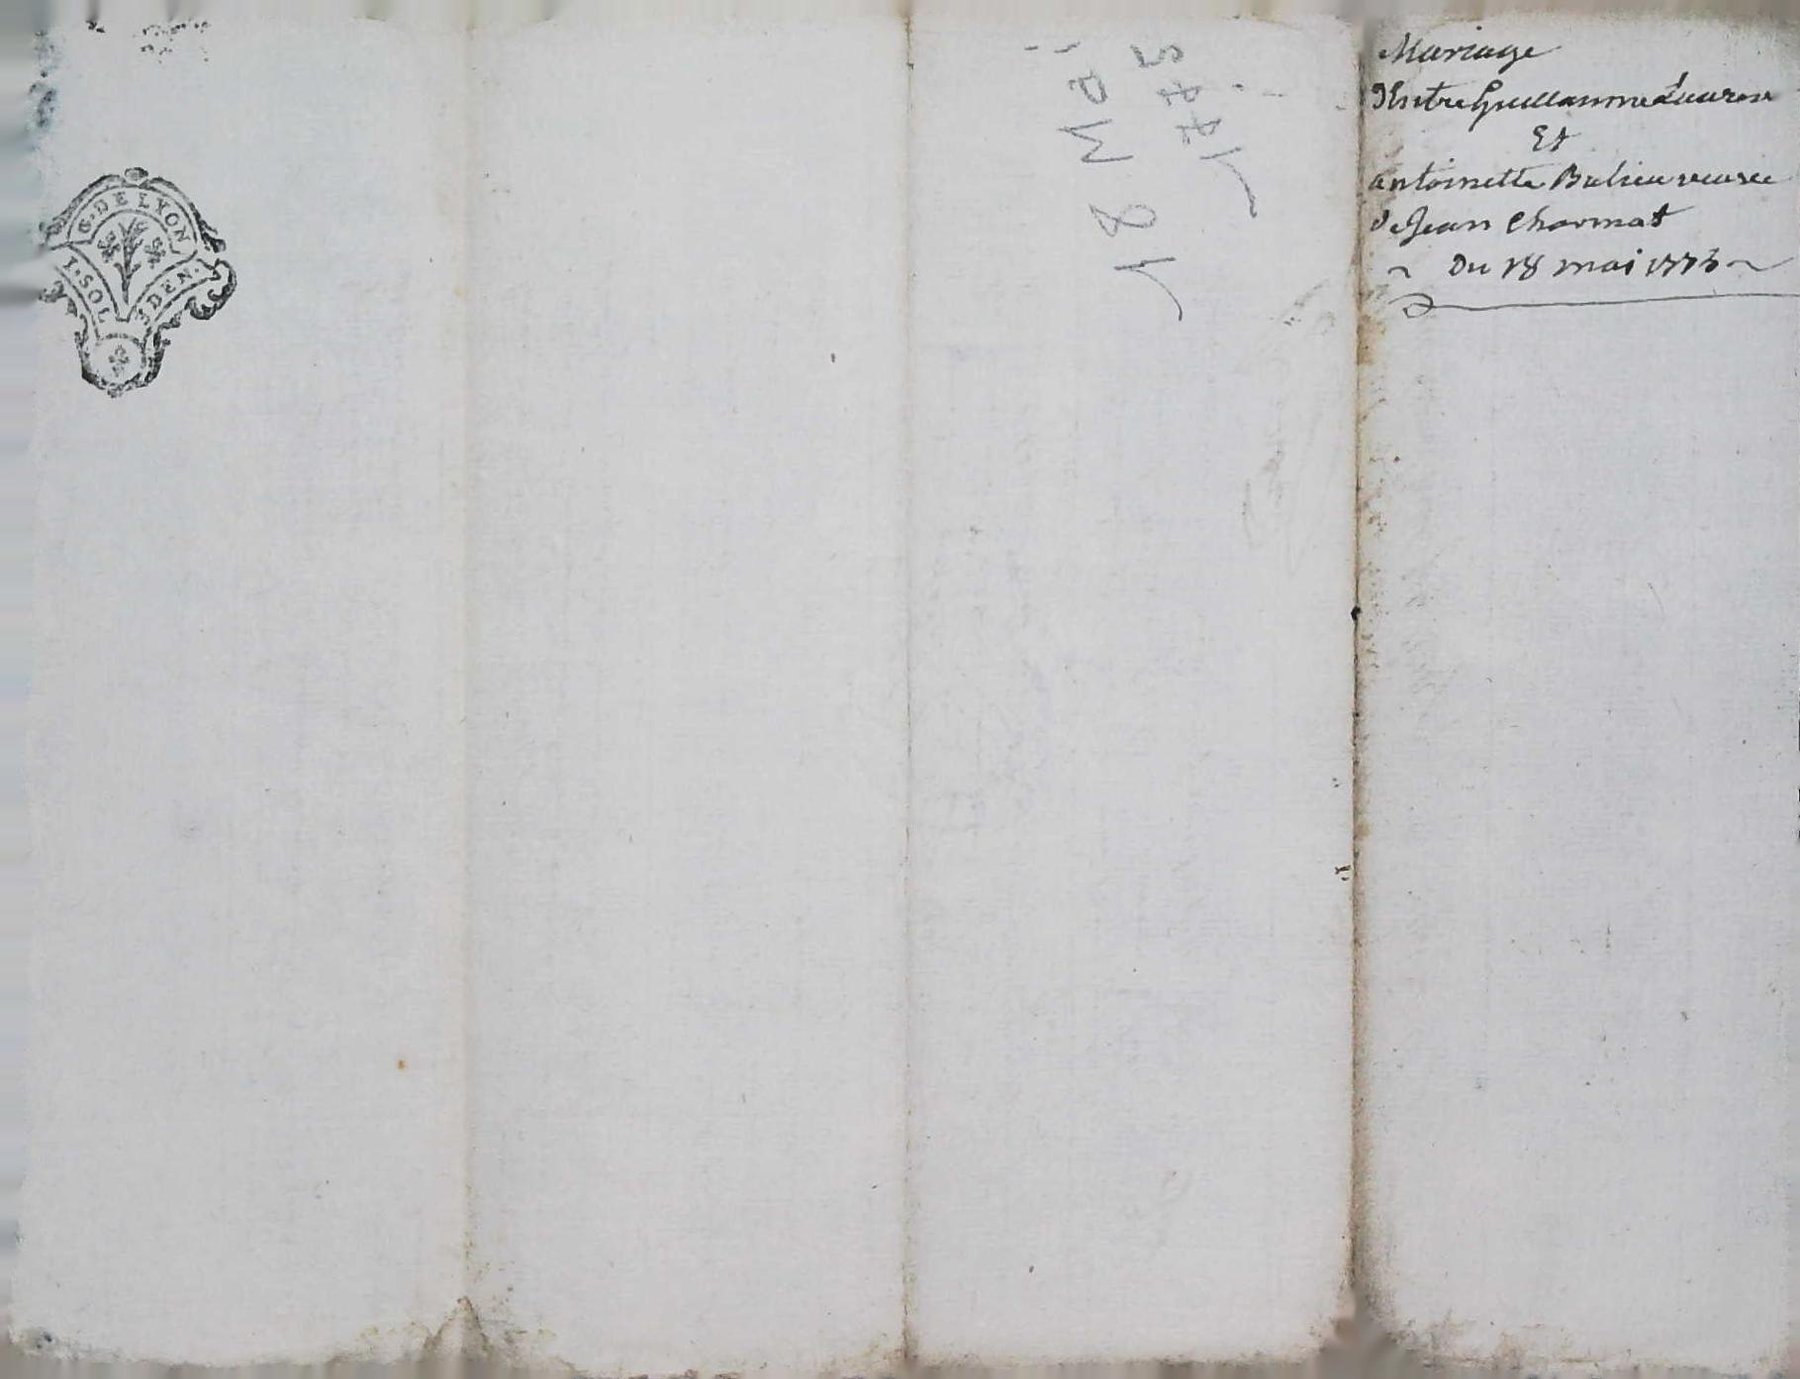 G. DE LYON
1. SOL DEN.
18 Mai
1775
Mariage
d'Entre Guillaume
Et
antoinette Bulieu veuve
de Jean Charmat
Du 18 mai 1775